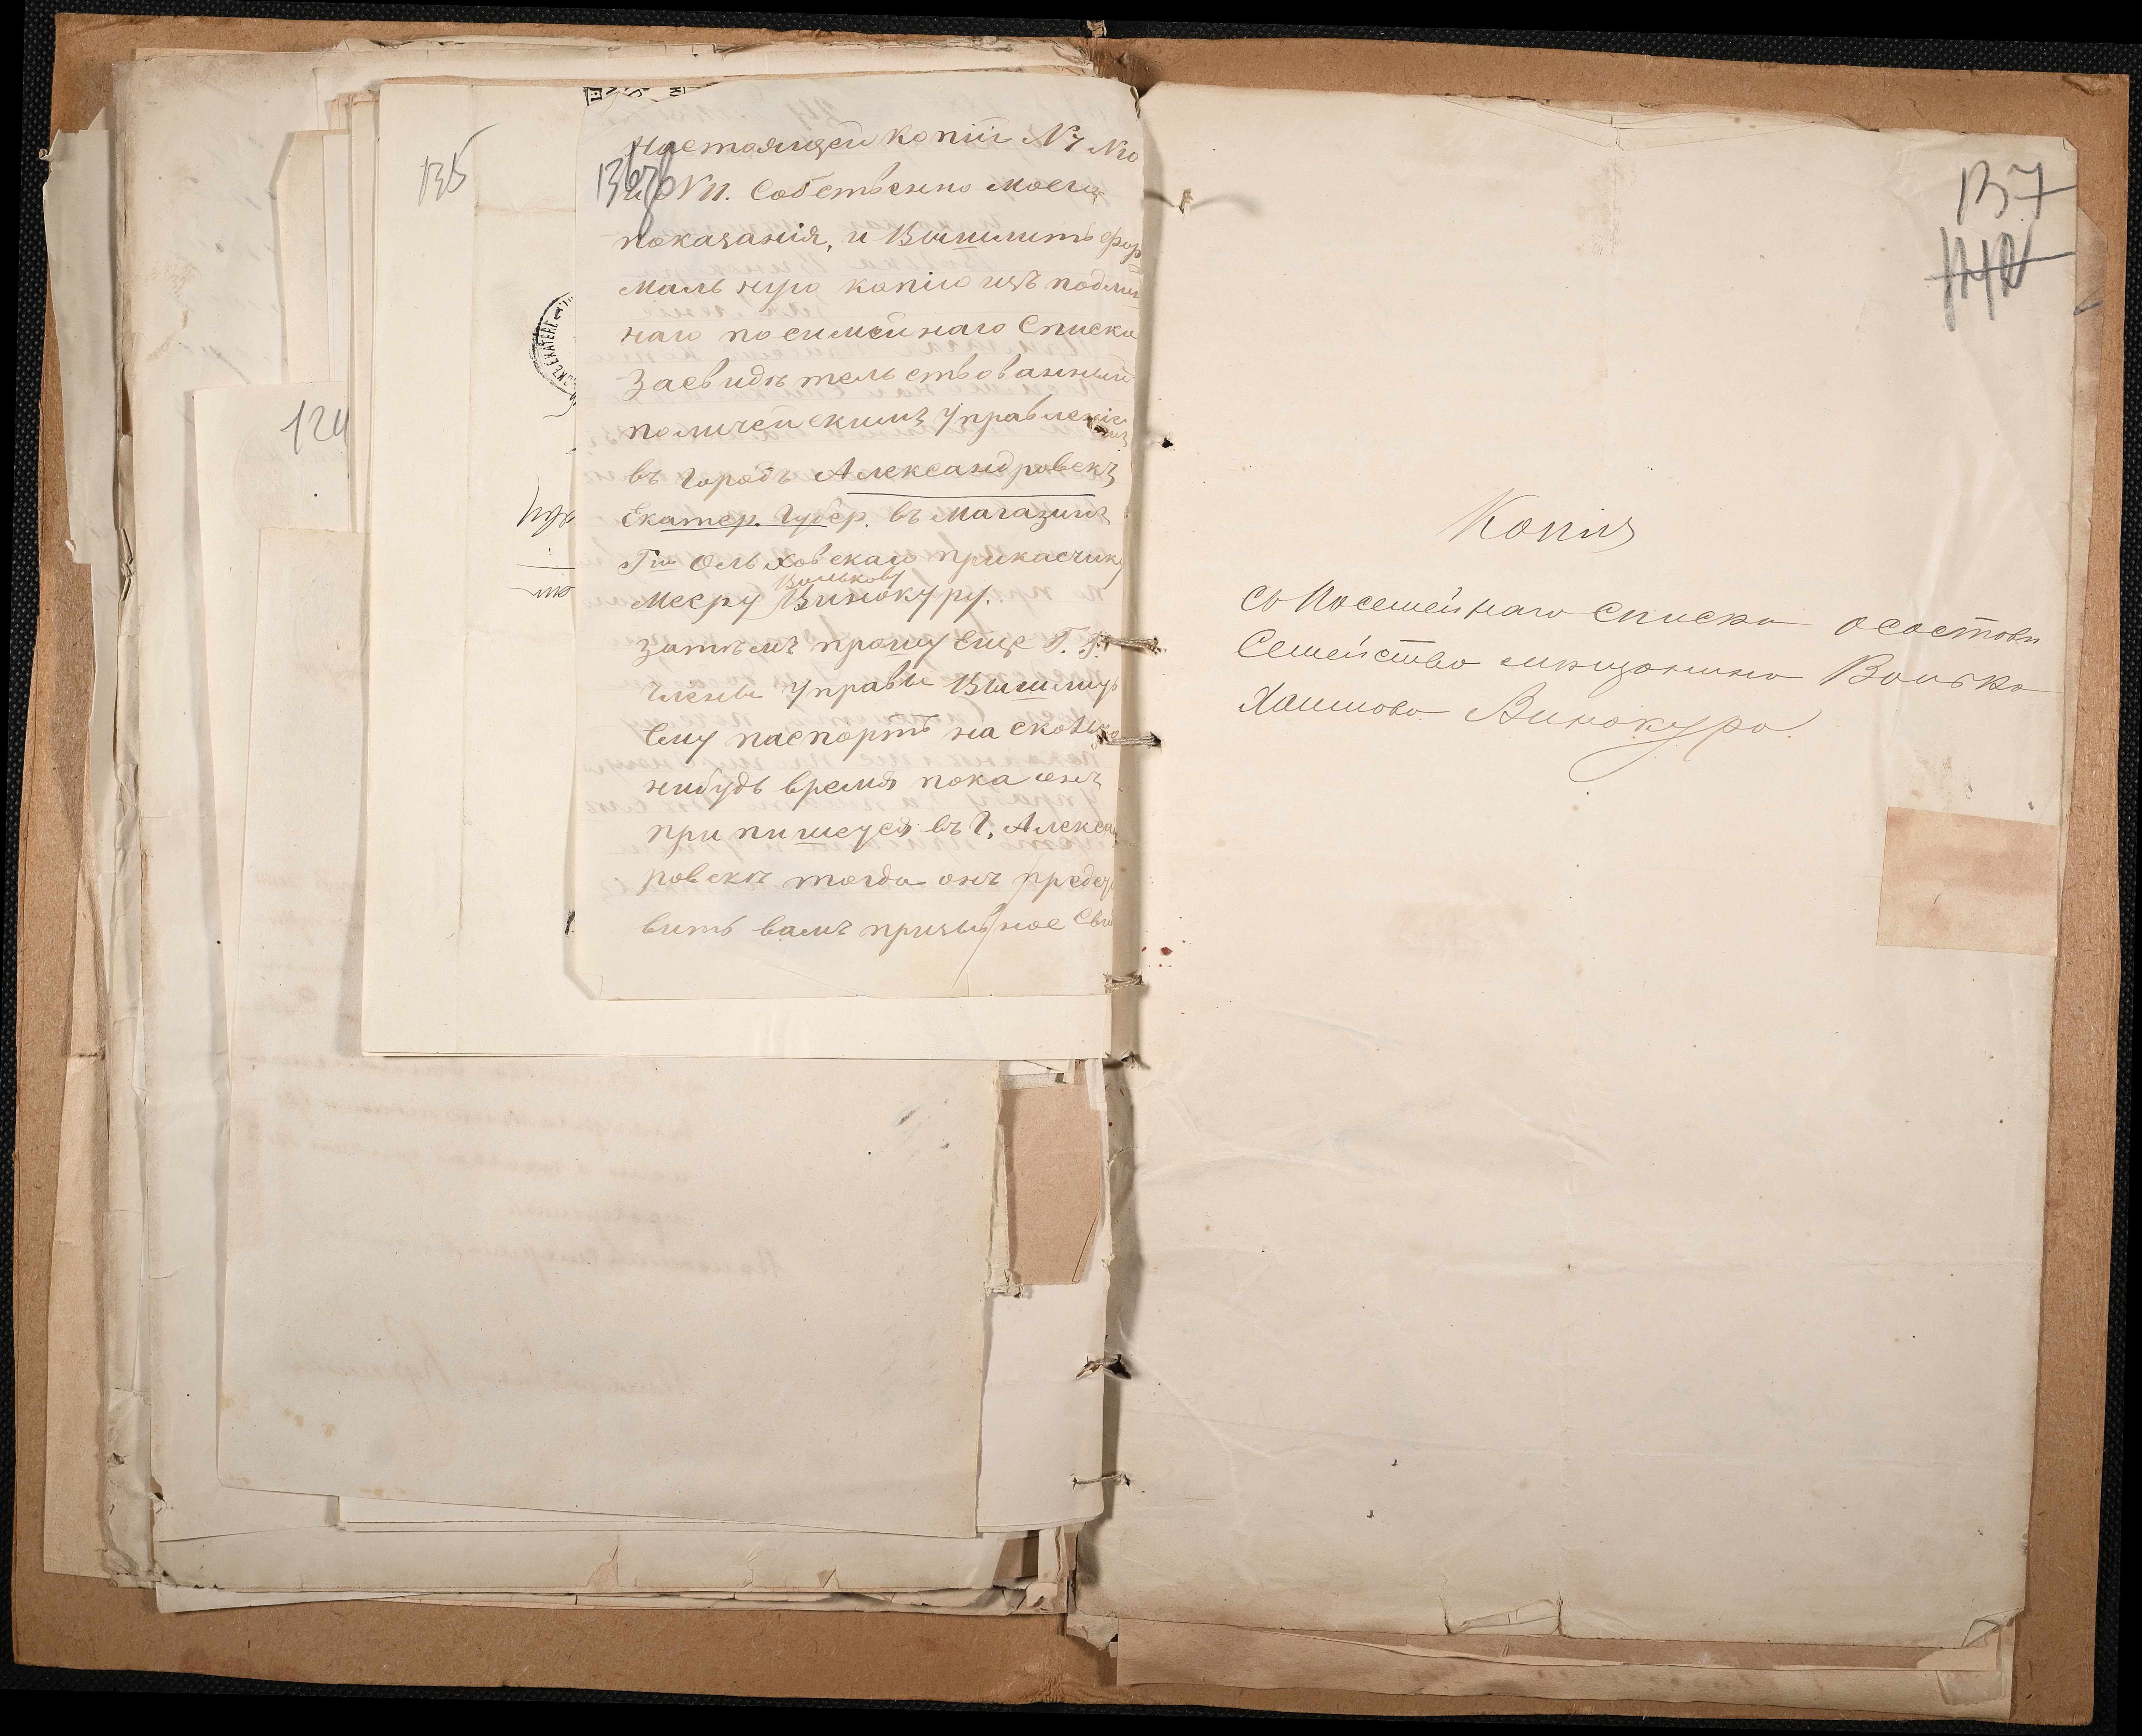 124
135
136об
Настоящей копіи №7 №10
и №11. Собственно моего
показанія, и Вышлить фор
мальную копію изъ подлин
наго посимейнаго Списка
Засвидѣтельствованный
полицейскимъ Управленіемъ
въ Городъ Александровскъ
Екатер. Губер. въ Магазинъ
Гна Ольховскаго прикасчику
Вольковy
Мееру Винокуру.
затѣмъ прошу Еще Г. Г.
Члены Управы Вышлить
Ему паспортъ на сколько
нибудь время пока онъ
припишеуся въ Г. Алексан
ровскъ тогда онъ предст
вить вамъ пріемное Сви
137
142
Копія
Съ Посемейнаго списка о составѣ
Семейство мѣщанина Волька
Хаимова Винокура.